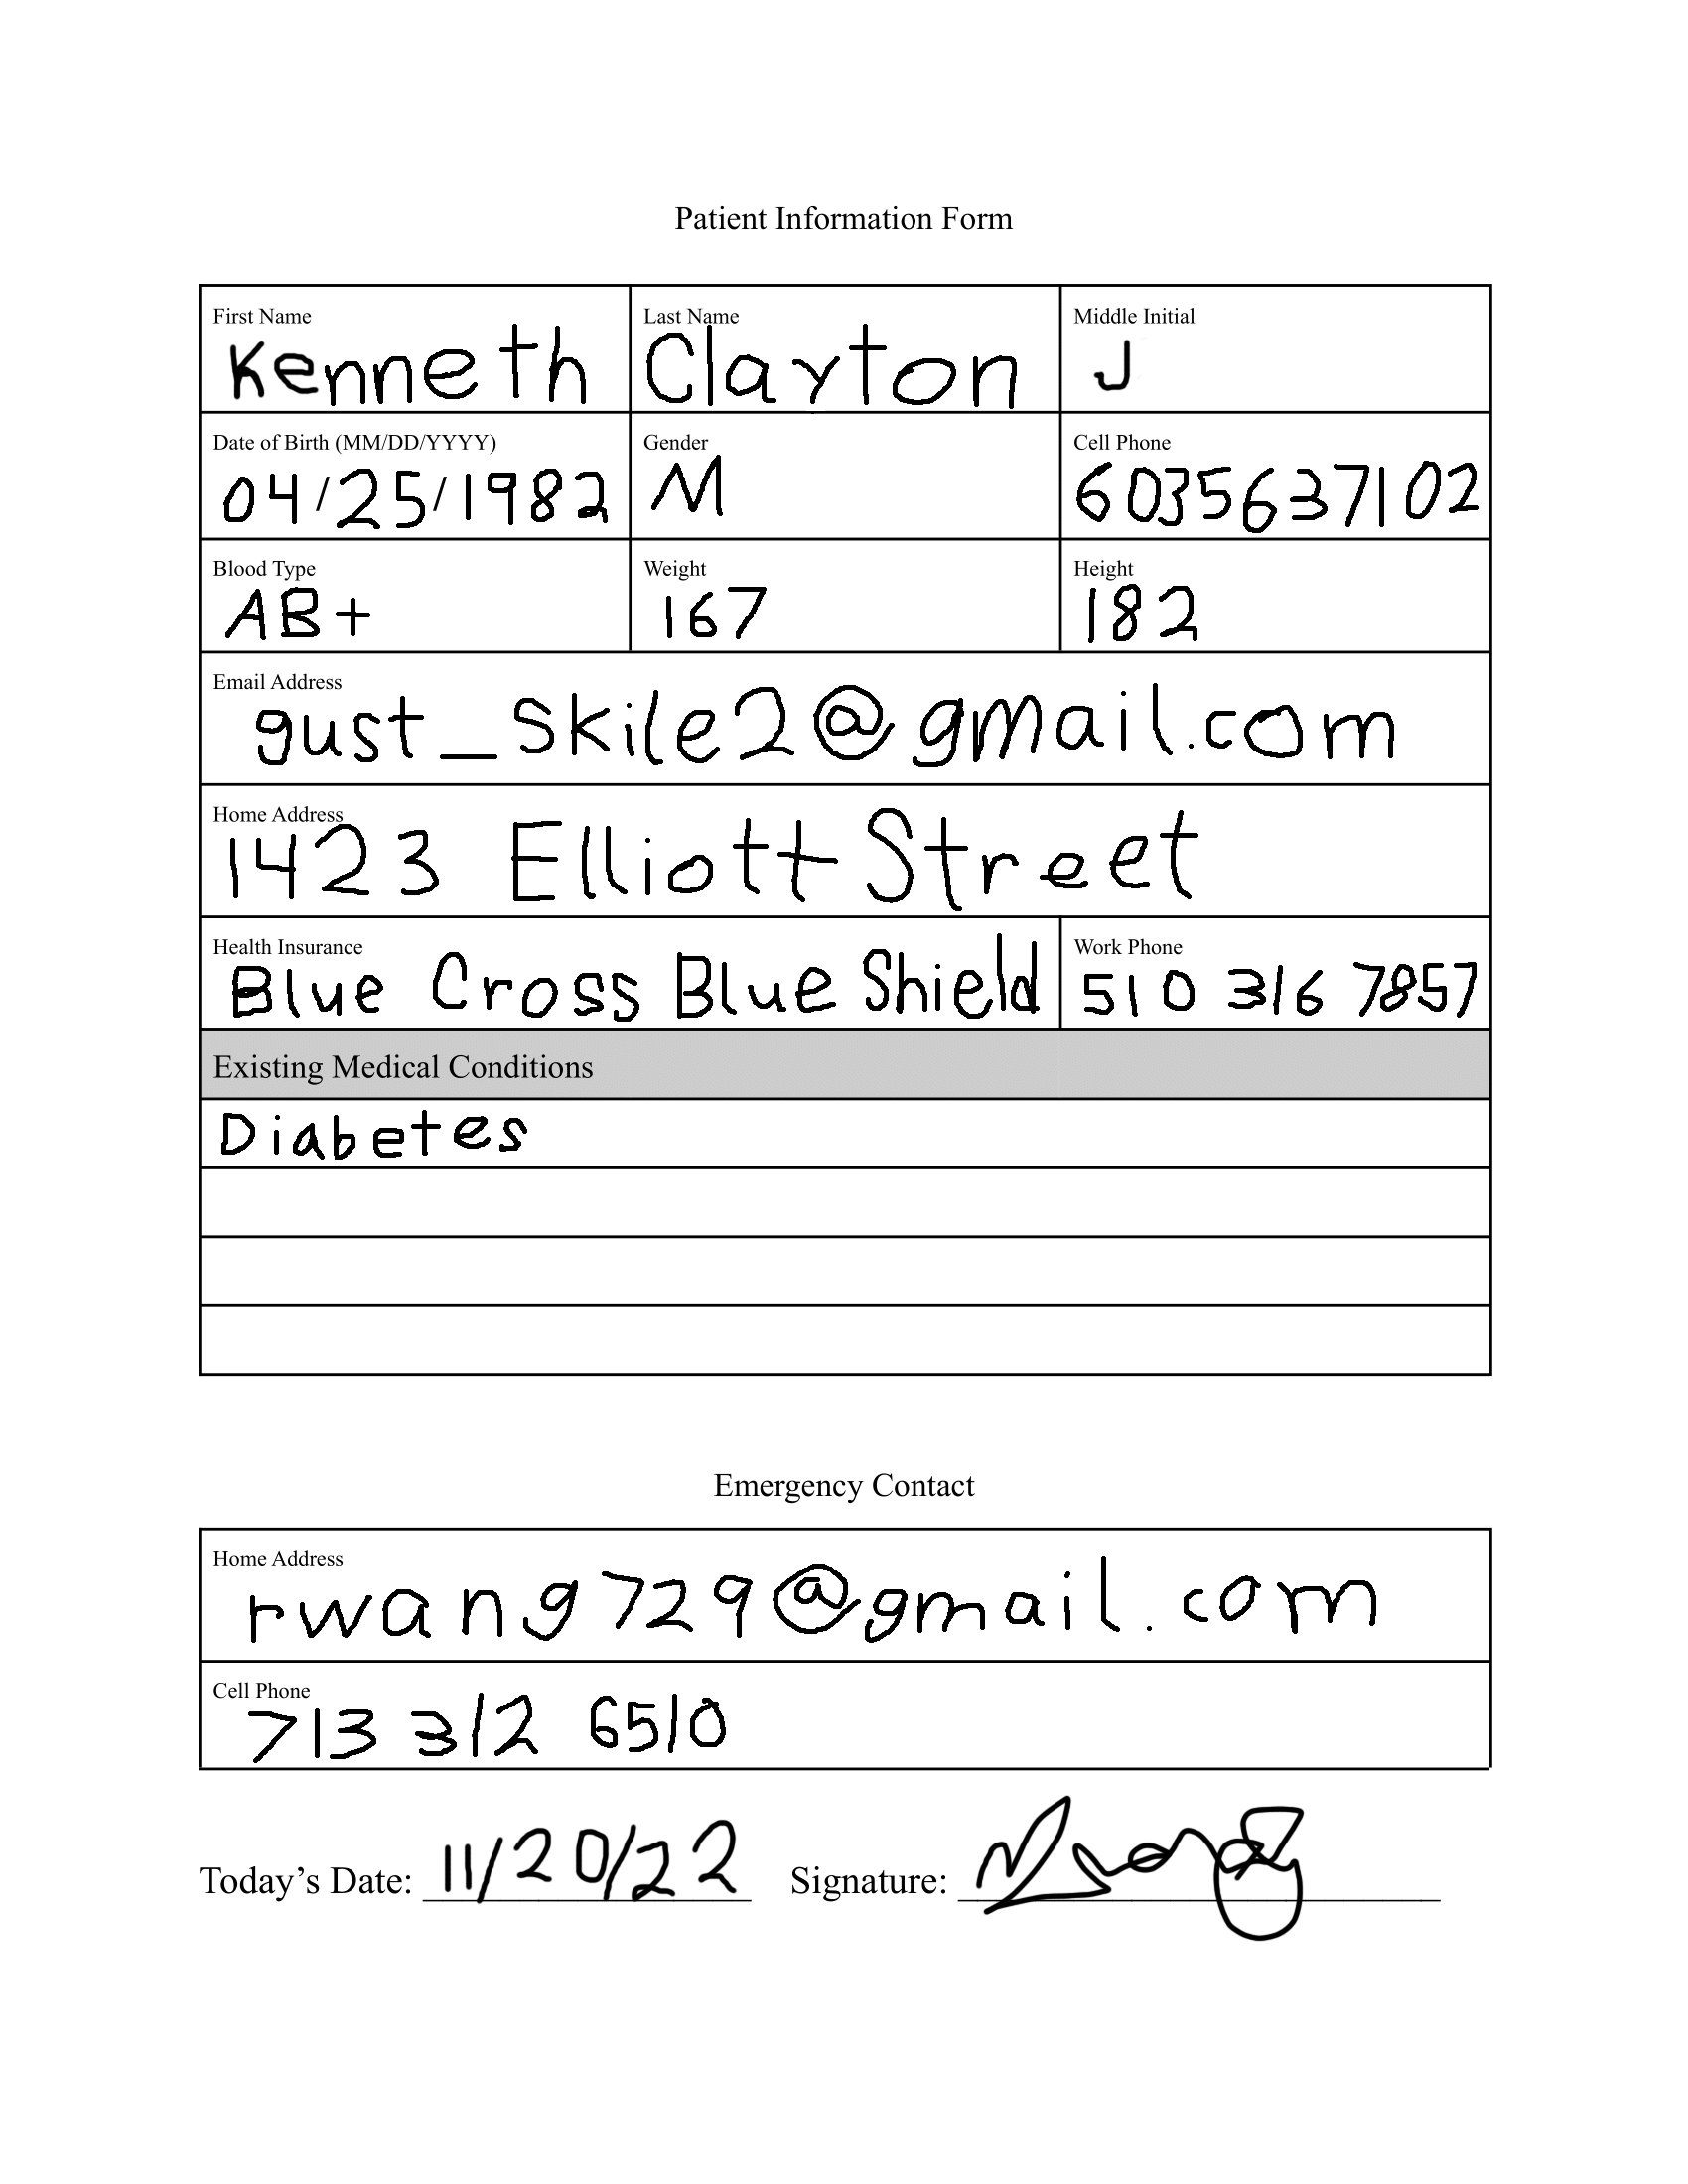 Patient Information Form
First Name Last Name Middle Initial
Kenneth Clayton J
Date of Birth (MM/DD/YYYY) Gender Cell Phone
04/25/1982 M 6035637102
Blood Type Weight Height
AB+ 167 182
Email Address
gust_skile2@gmail.com
Home Address
1423 Elliott Street
Health Insurance Work Phone
Blue Cross Blue Shield 510 316 7857
Existing Medical Conditions
Diabetes
Emergency Contact
Home Address
rwang729@gmail.com
Cell Phone
713 312 6510
Today’s Date: 11/20/22 Signature: